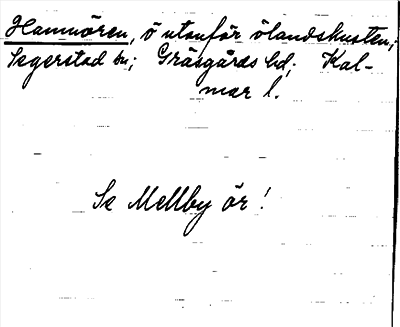 Hamnören, ö utanför ölandskusten;
Segerstad sn; Gräsgårds hd; Kal-
mar l.
Se Mellby ör!